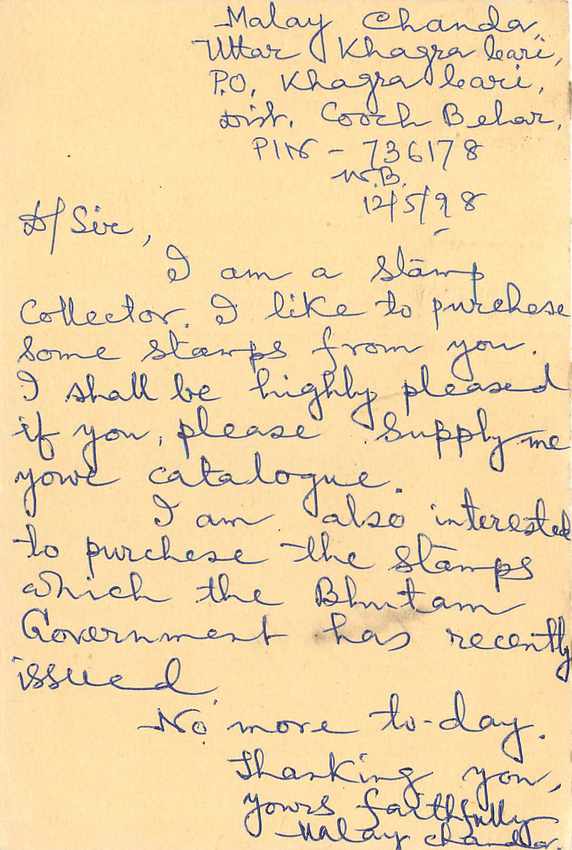 Malay Chanda,
Uttar Khagrabari,
P.O. Khagrabari,
Dist. Cooch Behar,
PIN - 736178
W.B.
12/5/98
D/Sir,
I am a stamp
collector. I like to purchese
some stamps from you.
I shall be highly pleased
if you, please supply me
your catalogue.
I am also interested
to purchese the stamps
which the Bhutan
Government has recently
issued.
No more to-day.
Thanking you,
yours faithfully
Malay Chanda.